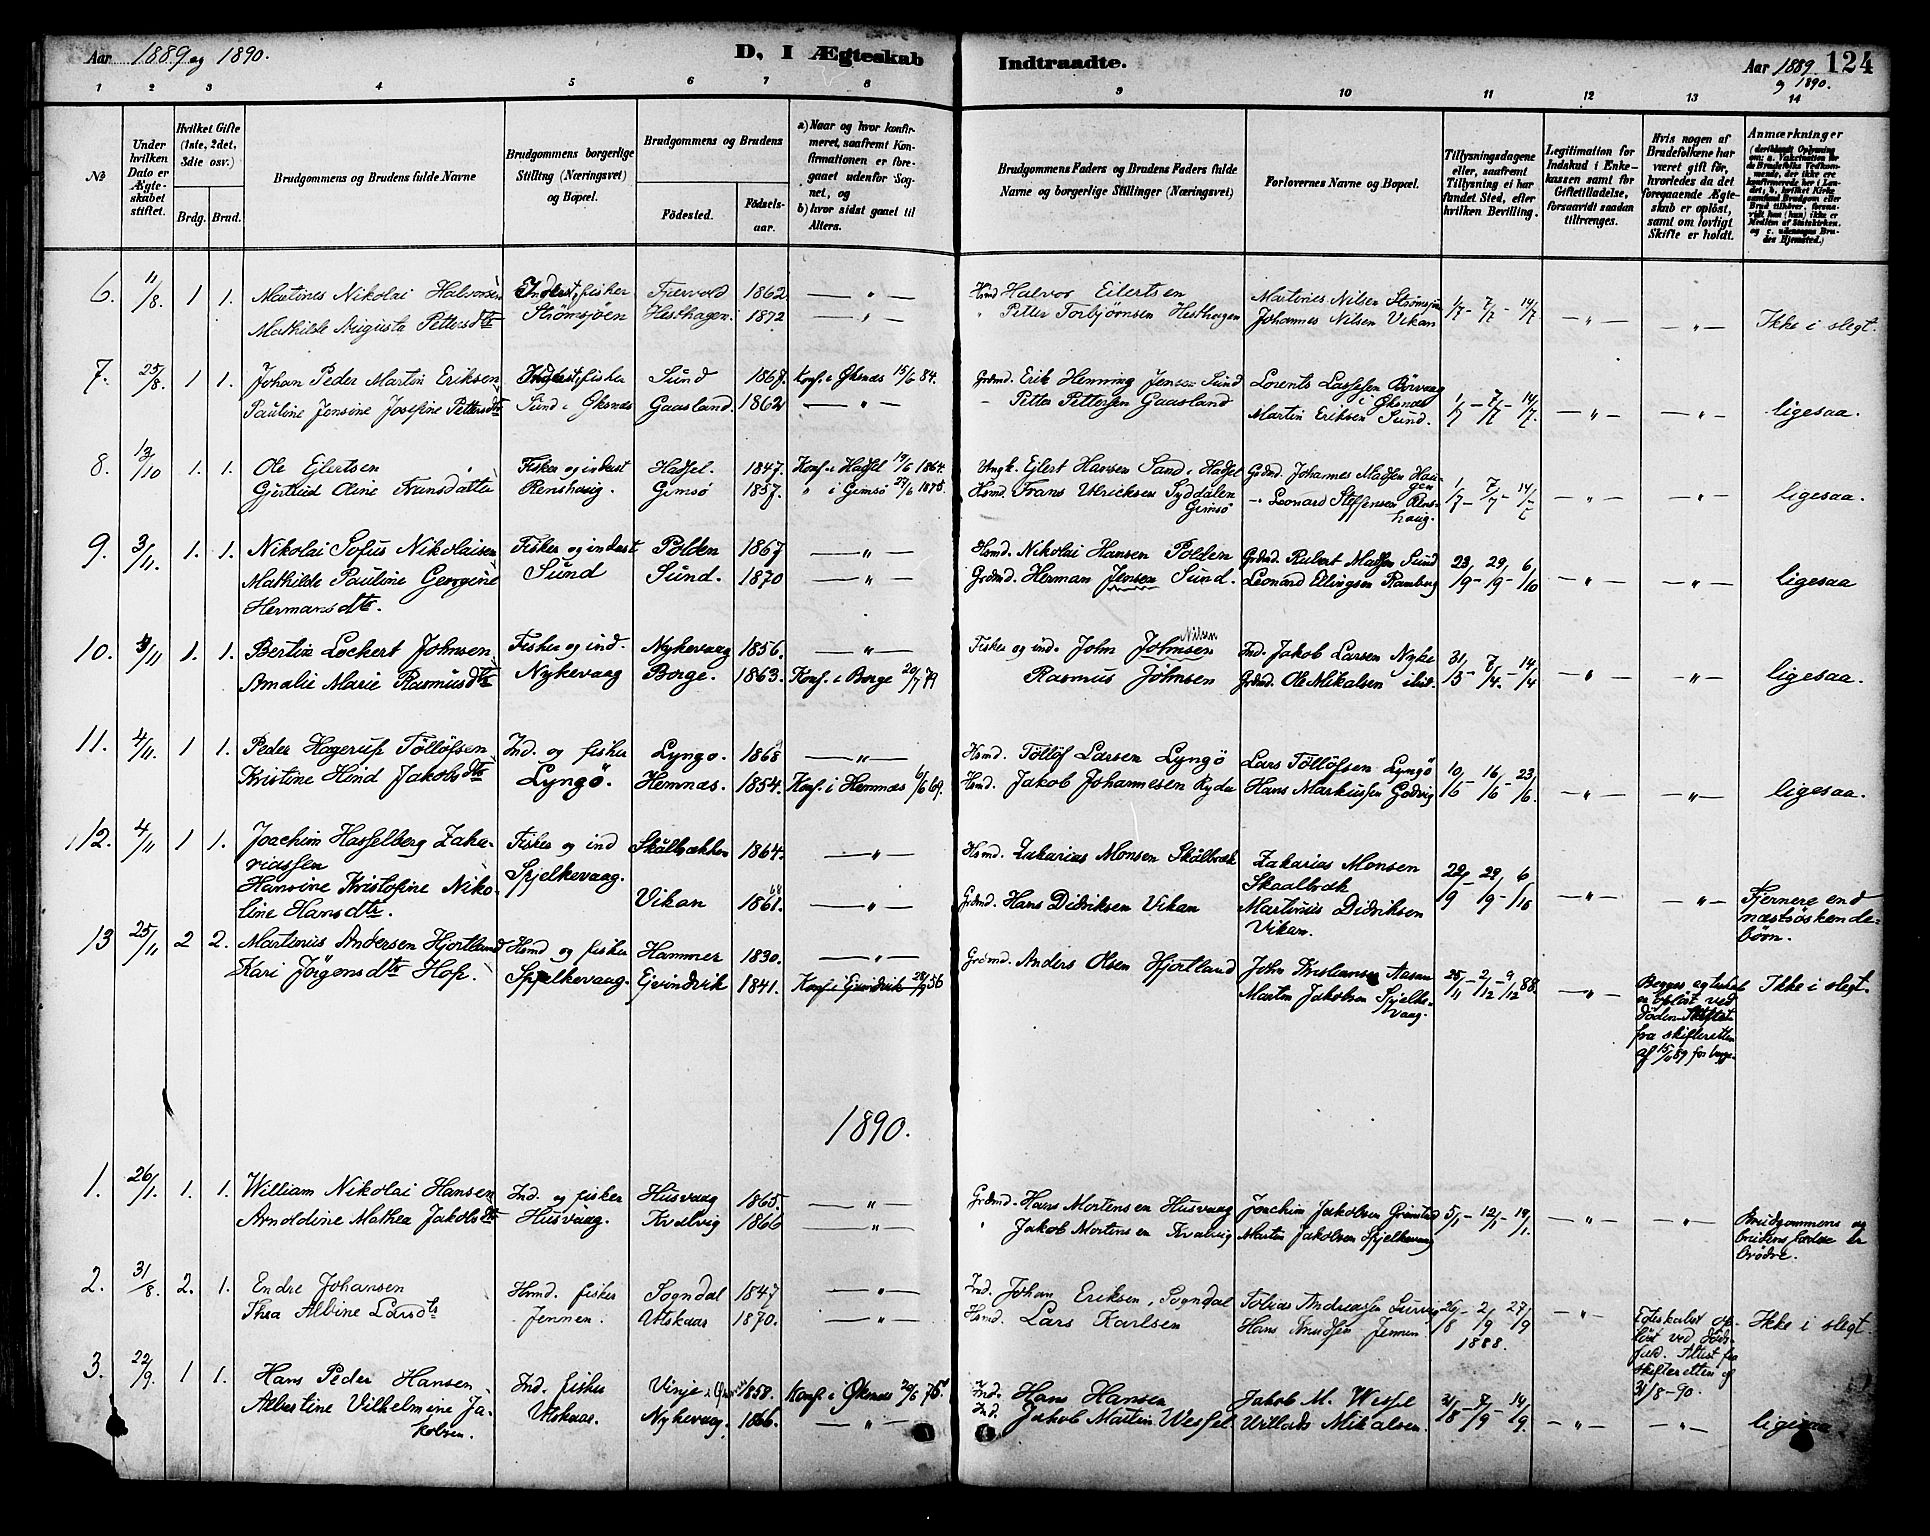 Aar 1889 og 1890.
D. I Ægteskab
Indtraadte.
Aar 1889 og 1890.
124
1 2 3 4 5 6 7 8 9 10 11 12 13 14
№
Under hvilken Dato er Ægteskabet stiftet.
Hvilket Gifte (1ste, 2det, 3die osv.)
Brdg. Brud.
Brudgommens og Brudens fulde Navne
Brudgommens borgerlige Stilling (Næringsvei) og Bopæl.
Brudgommens og Brudens
Födested.
Födsels-aar.
a) Naar og hvor konfirmeret, saafremt Konfirmationen er foregaaet udenfor Sognet, og
b) hvor sidst gaaet til Alters.
Brudgommens Faders og Brudens Faders fulde Navne og borgerlige Stillinger (Næringsvei)
Forlovernes Navne og Bopæl.
Tillysningsdagene eller, saafremt Tillysning ei har fundet Sted, efter hvilken Bevilling.
Legitimation for Indskud i Enkekassen samt for Giftetilladelse, forsaavidt saadan tiltrænges.
Hvis nogen af Brudefolkene har været gift för, hvorledes da det foregaaende Ægteskab er oplöst, samt om lovligt Skifte er holdt.
Anmærkninger
6. 11/8. 1 1. Martines Nikolai Halvorsen Inderst, fisker Fjervold 1862 — " — Hsmd Halvor Eilertsen Martines Nilsen Strømsjøen 1/7 - 7/7 - 14/7
Mathilde Augusta Pettersdtr Strømsjøen Hesthagen 1872 — " — " Petter Torbjörnsen Hesthagen Johannes Nilsen Vikan — " — — " — Ikke i slegt.
7. 25/8. 1 1. Johan Peder Martin Eriksen Inderst, fisker Sund 1867. Konf. i Öksnæs 15/6 84. Grdmd. Erik Henning Jensen Sund Lorents Lassesen Börvaag i Öksnæs
Pauline Jensine Josefine Pettersdtr Sund i Öksnæs Gaasland 1862 — " — Petter Pettersen Gaasland Martin Eriksen Sund. 1/7 - 7/7 - 14/7. — " — — " — ligesaa.
8. 13/10 1. 1. Ole Ejlertsen Fisker og inderst Hadsel. 1847. Konf. i Hadsel 19/6 1864. Ungk. Ejlert Hansen Sand i Hadsel Grdmd. Johannes Madsen Haugen
Gjertrud Oline Fransdatter Renshaug. Gimsö 1857. " i Gimsö 27/6 1875. Hsmd. Frans Ulriksen Syddalen Gimsö Leonard Steffensen Renshaug. 1/7 - 7/7 - 14/7 — " — — " — ligesaa.
9. 3/11. 1. 1. Nikolai Sofus Nikolaisen Fisker og inderst Polden 1867 — " — Hsmd. Nikolai Hansen Polden Grdmd. Rubert Madsen Sund 23/9 - 29/9 - 6/10
Mathilde Pauline Georgine Sund Sund. 1870 — " — Grdmd. Herman Jensen Sund. Leonard Ellingsen Ramberg — " — — " — ligesaa
Hermansdtr.
10. 3/11 1. 1. Bertin Lockert Johnsen Fisker og ind. Nykevaag 1856. — " — Fisker og ind. John Johnsen Nilsen Ind. Jakob Larsen Nyke 31/3 - 7/4. - 14/4
Amalie Marie Rasmusdtr Nykevaag Borge. 1863. Konf. i Borge 20/7 79 Rasmus Johnsen Grdmd. Ole Mikalsen — " — — " — ligesaa.
11. 4/11. 1 1. Peder Hagerup Töllöfsen Ind. og fisker Lyngö. 1868 — " — Hsmd. Töllöf Larsen Lyngö Lars Töllöfsen Lyngö 10/6 - 16/6 - 23/6.
Kristine Hind Jakobsdtr Lyngö. Hemnæs. 1854. Konf. i Hemnæs 6/6 69. Hsmd. Jakob Johannesen Ryda Hans Markussen Godvig — " — — " — ligesaa.
12. 4/11 1 1. Joachim Hasselberg Zakariassen Fisker og ind Skålbrækken 1864. — " — Hsmd. Zakarias Monsen Skålbræk Zakarias Monsen Skaalbræk 22/9 - 29/9 - 6/10
Hansine Kristofine Nikoline Hansdtr. Spjelkevaag. Vikan 1861. 68 — " — Grdmd. Hans Didriksen Vikan Martinus Didriksen Vikan. — " — — " — Fjernere end næstsöskendebörn.
13 25/11 2 2. Martinus Andersen Hjortland Hsmd og fisker Hammer 1830. — " — Grdmd. Anders Olsen Hjortland John Kristiansen Aasan 25/11 - 2/12 - 9/12 88.
Kari Jörgensdtr Hop. Spjelkevaag. Evindvik 1841. Konf. i Evindvik 56 Martin Jakobsen Spjelkevaag. — " — Begges egteskab er oplöst ved döden. Skifteat. fra skifteretten af 15/ 89 for begge. Ikke i slegt.
1890.
1. 26/1. 1. 1. William Nikolai Hansen Ind. og fisker Husvaag 1865. — " — Grdmd. Hans Mortensen Husvaag Joachim Jakobsen Grimstad 5/1 - 12/1 - 19/1.
Arnoldine Mathea Jakobsdtr Husvaag. Kvalvig 1866 — " — " Jakob Mortensen Kvalvig Martin Jakobsen Spjelkevaag — " — — " — Brudgommens og brudens fædre er brödre.
2. 31/8. 2. 1. Endre Johansen Hsmd. fisker Sogndal 1847 — " — Ind. Johan Eriksen, Sogndal Tobias Andreassen 26/8 - 2/9 - 27/9 1888.
Thea Albine Larsdtr Jennen. Utskaar 1870. — " — Hsmd. Lars Karlsen Hans Knudsen Jennen — " — Egteskabet oplöst ved dödsfald. Attest fra skifteretten af 21/8-90. Ikke i slegt.
3. 22/9. 1 1 Hans Peder Hansen Ind. fisker Vinje i 1858. Konf. i Öksnæs 20/6 75. Ind. Hans Hansen Jakob M. Wessel 21/8 - 7/9 - 14/9
Albertine Vilhelmine Jakobsen. Utskaar. Nykevaag. 1866. — " — Ind. Jakob Martin Wessel Willads Mikalsen. — " — — " — ligesaa